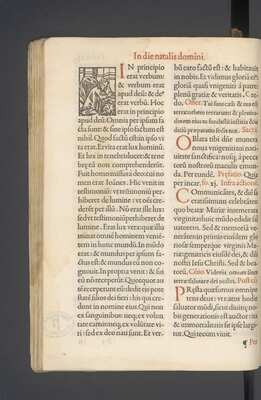 In die natalis domini.
IN principio
erat verbum:
& verbum erat
apud deū: & de⁹
erat verbū. Hoc
erat in principio
apud deū. Omnia per ipsum fa
cta sunt: & sine ipso factum est
nihil. Quod factū est in ipso vi
ta erat. Et vita erat lux hominū:
Et lux in tenebris lucet: & tene
bre eā non comprehenderunt.
Fuit homo missus a deo: cui no
men erat Ioānes. Hic venit in
testimoniū: vt testimoniū per-
hiberet de lumine/ vt oēs cre-
derēt per illū. Nō erat ille lux:
sed vt testimoniū perhiberet de
lumine. Erat lux vera: que illu
minat omnē hominem venien-
tem in hunc mundū. In mundo
erat: & mundus per ipsum fa-
ctus est: & mundus eū non co-
gnouit. In propria venit: & sui
eū nō receperūt. Quotquot aūt
receperunt eū: dedit eis pote
statē filios dei fieri: his qui cre-
dunt in nomine eius. Qui non
ex sanguinibus: neq; ex volun
tate carnis: neq; ex volūtate vi-
ri: sed ex deo nati sunt. Et ver-
bū caro factū est: & habitauit
in nobis. Et vidimus gloriā ei⁹:
gloriā quasi vnigeniti a patre:
plenū gratie & veritatis. Credo.
Offer. Tui sunt celi: & tua est
terra: orbem terrarum: & plenitu-
dinem eius tu fundasti: iustitia & iu-
diciū preparatio sedis tue. Secreta.
OBlata tibi dñe munera
noua vnigeniti tui nati-
uitate sanctifica: nosq; a pecca
torū nostrorū maculis emun-
da. Per eundē. Prefatio. Quia
per incar. fo. xj. Infra actionē.
COmmunicātes, & diē sa
cratissimum celebrātes:
quo beate Marie intemerata
virginitas: huic mūdo edidit sal
uatorem. Sed & memoriā ve-
nerantes: in primis eiusdem glo
riose semperq; virginis Ma-
rie: genitricis eiusdē dei, & dñi
nostri Iesu Christi. Sed & bea-
torū. Cōio. Viderūt omnes fines
terre salutare dei nostri. Post cō.
PResta quesumus omnipo
tens deus: vt natus hodie
saluator mundi: sicut diuine no
bis generationis est auctor: ita
& immortalitatis sit ipse largi
tor. Qui tecum viuit.